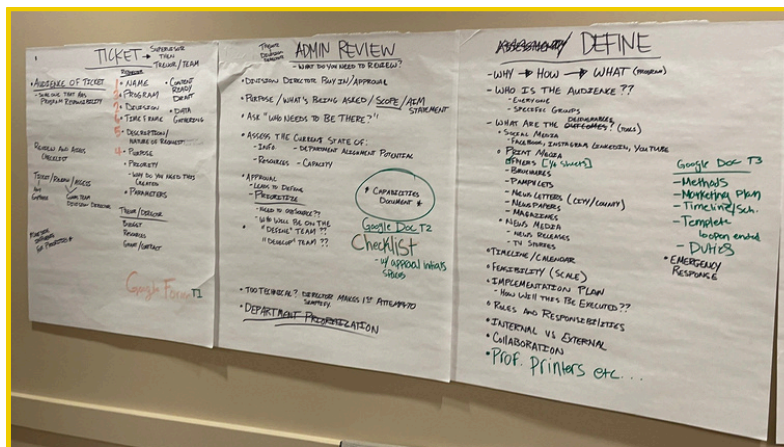 TICKET → SUPERVISOR
THEN
TREVOR/TEAM
• AUDIENCE OF TICKET
- SOMEONE THAT HAS
PROGRAM RESPONSIBILITY
REVIEW AND ASSESS
CHECKLIST
TICKET/REVIEW/ASSESS
DIVISION DIRECTOR
1 • NAME
2 • PROGRAM
3 • DIVISION
6 • TIME FRAME
5 • DESCRIPTION/
NATURE OF REQUEST
4 • PURPOSE
• PRIORITY
- WHY DO YOU NEED THIS
CREATION
• PARAMETERS
• CONTENT
READY/
DRAFT
• DATA
GATHERING
TREVOR/DIRECTOR
BUDGET
RESOURCES
GRANT/CONTRACT
Google Form T1
ADMIN REVIEW
- WHAT DO YOU NEED TO REVIEW?
• DIVISION DIRECTOR BUY IN/APPROVAL
• PURPOSE/WHAT'S BEING ASKED/SCOPE/AIM
STATEMENT
• ASK "WHO NEEDS TO BE THERE?"
• ASSESS THE CURRENT STATE OF:
- INFO - DEPARTMENT ALIGNMENT POTENTIAL
- RESOURCES - CAPACITY
• APPROVAL
- LEADS TO DEFINE
- PRIORITIZE
- NEED TO OUTSOURCE??
- WHO WILL BE ON THE
"DEFINE" TEAM??
"DEVELOP" TEAM??
* CAPABILITIES
DOCUMENT *
Google Doc T2
Checklist
- w/ approval initials
spaces
• TOO TECHNICAL? DIRECTOR MAKES 1ST ATTEMPT TO
SIMPLIFY
• DEPARTMENT PRIORITIZATION
DEFINE
- WHY → HOW → WHAT (PROGRAM)
- WHO IS THE AUDIENCE??
- EVERYONE
- SPECIFIC GROUPS
DELIVERABLES
- WHAT ARE THE OUTCOMES? (TOOLS)
• SOCIAL MEDIA
- FACEBOOK, INSTAGRAM, LINKEDIN, YOUTUBE
• PRINT MEDIA
- BROCHURES
- PAMPLETS
- NEWS LETTERS (CITY/COUNTY)
- NEWSPAPERS
- MAGAZINES
• NEWS MEDIA
- NEWS RELEASES
- TV STORIES
• TIMELINE/CALENDAR
• FEASIBILITY (SCALE)
• IMPLEMENTATION PLAN
- HOW WILL THIS BE EXECUTED??
• ROLES AND RESPONSIBILITIES
• INTERNAL VS EXTERNAL
• COLLABORATION
• Prof. Printers etc...
Google Doc T3
- Methods
- Marketing Plan
- Timeline/Sch.
- Template
open ended
- Duties
• EMERGENCY
RESPONSE